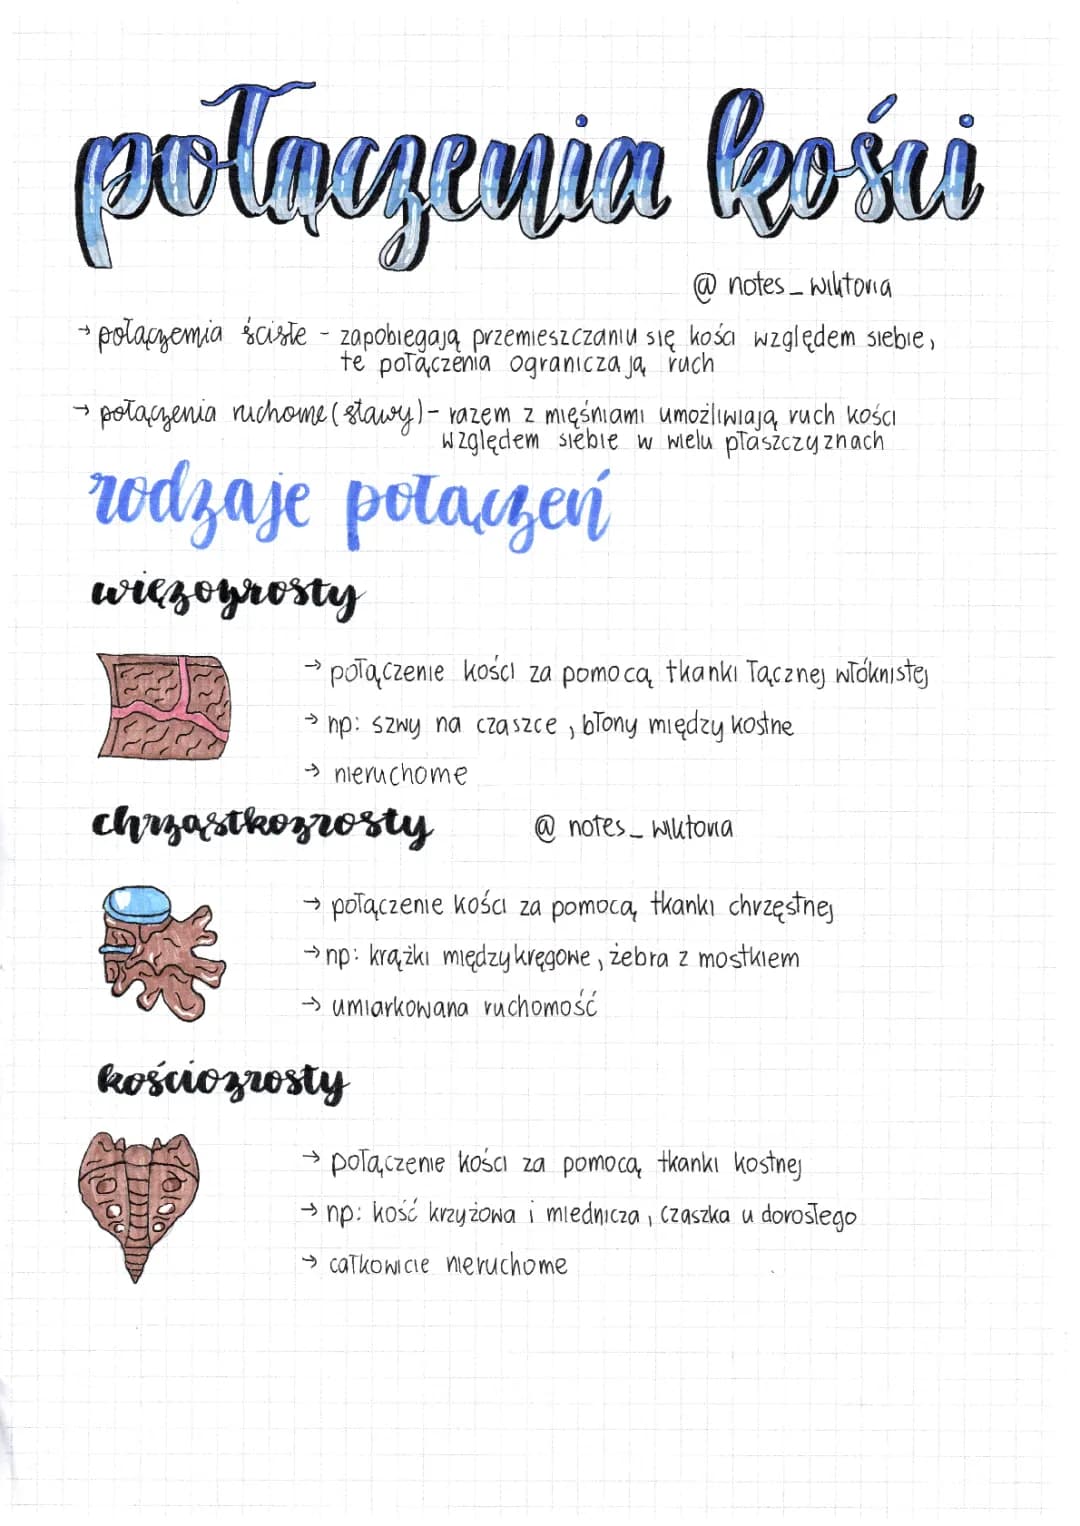 połączenia kości
@ notes_wiktoria
→ połączenia ścisłe - zapobiegają przemieszczaniu się kości względem siebie,
te połączenia ograniczają ruch
→ połączenia ruchome (stawy) - razem z mięśniami umożliwiają ruch kości
względem siebie w wielu płaszczyznach
rodzaje połączeń
więzozrosty
→ połączenie kości za pomocą tkanki łącznej włóknistej
→ np: szwy na czaszce, błony między kostne
→ nieruchome
chrząstkozrosty
@ notes_wiktoria
→ połączenie kości za pomocą tkanki chrzęstnej
→ np: krążki międzykręgowe, żebra z mostkiem
→ umiarkowana ruchomość
kościozrosty
→ połączenie kości za pomocą tkanki kostnej
→ np: kość krzyżowa i miednicza, czaszka u dorosłego
→ całkowicie nieruchome